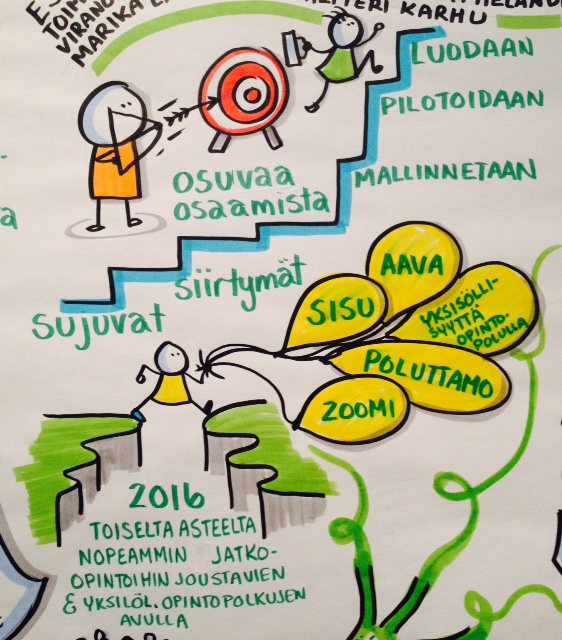 MARIKA
KARHU
LUODAAN
PILOTOIDAAN
MALLINNETAAN
OSUVAA
OSAAMISTA
SUJUVAT
SIIRTYMÄT
AAVA
SISU
YKSISÖLLI-
SYYTTÄ
OPINTO-
POLULLA
POLUTTAMO
ZOOMI
2016
TOISELTA ASTEELTA
NOPEAMMIN JATKO-
OPINTOIHIN JOUSTAVIEN
& YKSILÖL. OPINTOPOLKUJEN
AVULLA